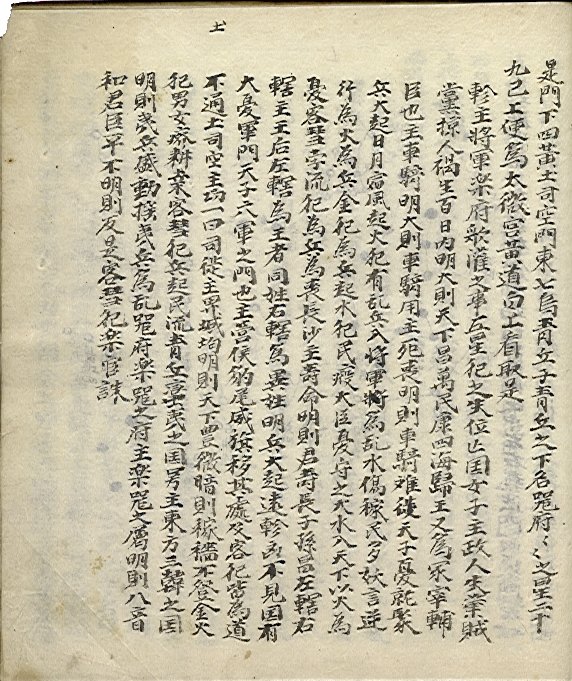 土
是門下四黃土司空門東七烏青丘子青丘之下名噐府〻之星三十
九已上便為太微宮黃道向上看取是
軫主將軍楽府歌之事五星犯之失位亡国女子主政人失業賊
黨掠人禍生百日内明大則天下昌萬民康四海歸王又為冢宰輔
臣也主車騎明大則車騎用主死喪明則車騎难從天子憂就聚
兵大起日月宿風起火犯有乱兵入將軍將為乱水傷稼民多妖言逆
行為火為兵金犯為兵起水犯民疫大臣憂守之大水入天下以火為
憂客彗孛流犯為兵為喪長沙主壽命明則君壽長子孫昌左轄右
轄主王后左轄為王者同姓右轄為異姓明兵大起遠軫凶不見国有
大憂軍門天子六軍之門也主營侯豹尾威旗移其處及客犯皆為道
不通土司空主功一曰司徒主界域均明則天下豊微暗則稼穡不登金火
犯男女癈耕桒客彗犯兵起民流青丘蛮夷之国号主東方三韓之国
明則夷兵盛動揺夷兵為乱噐府楽噐之府主楽噐之屬明則八音
和君臣平不明則反是客彗犯楽官誅